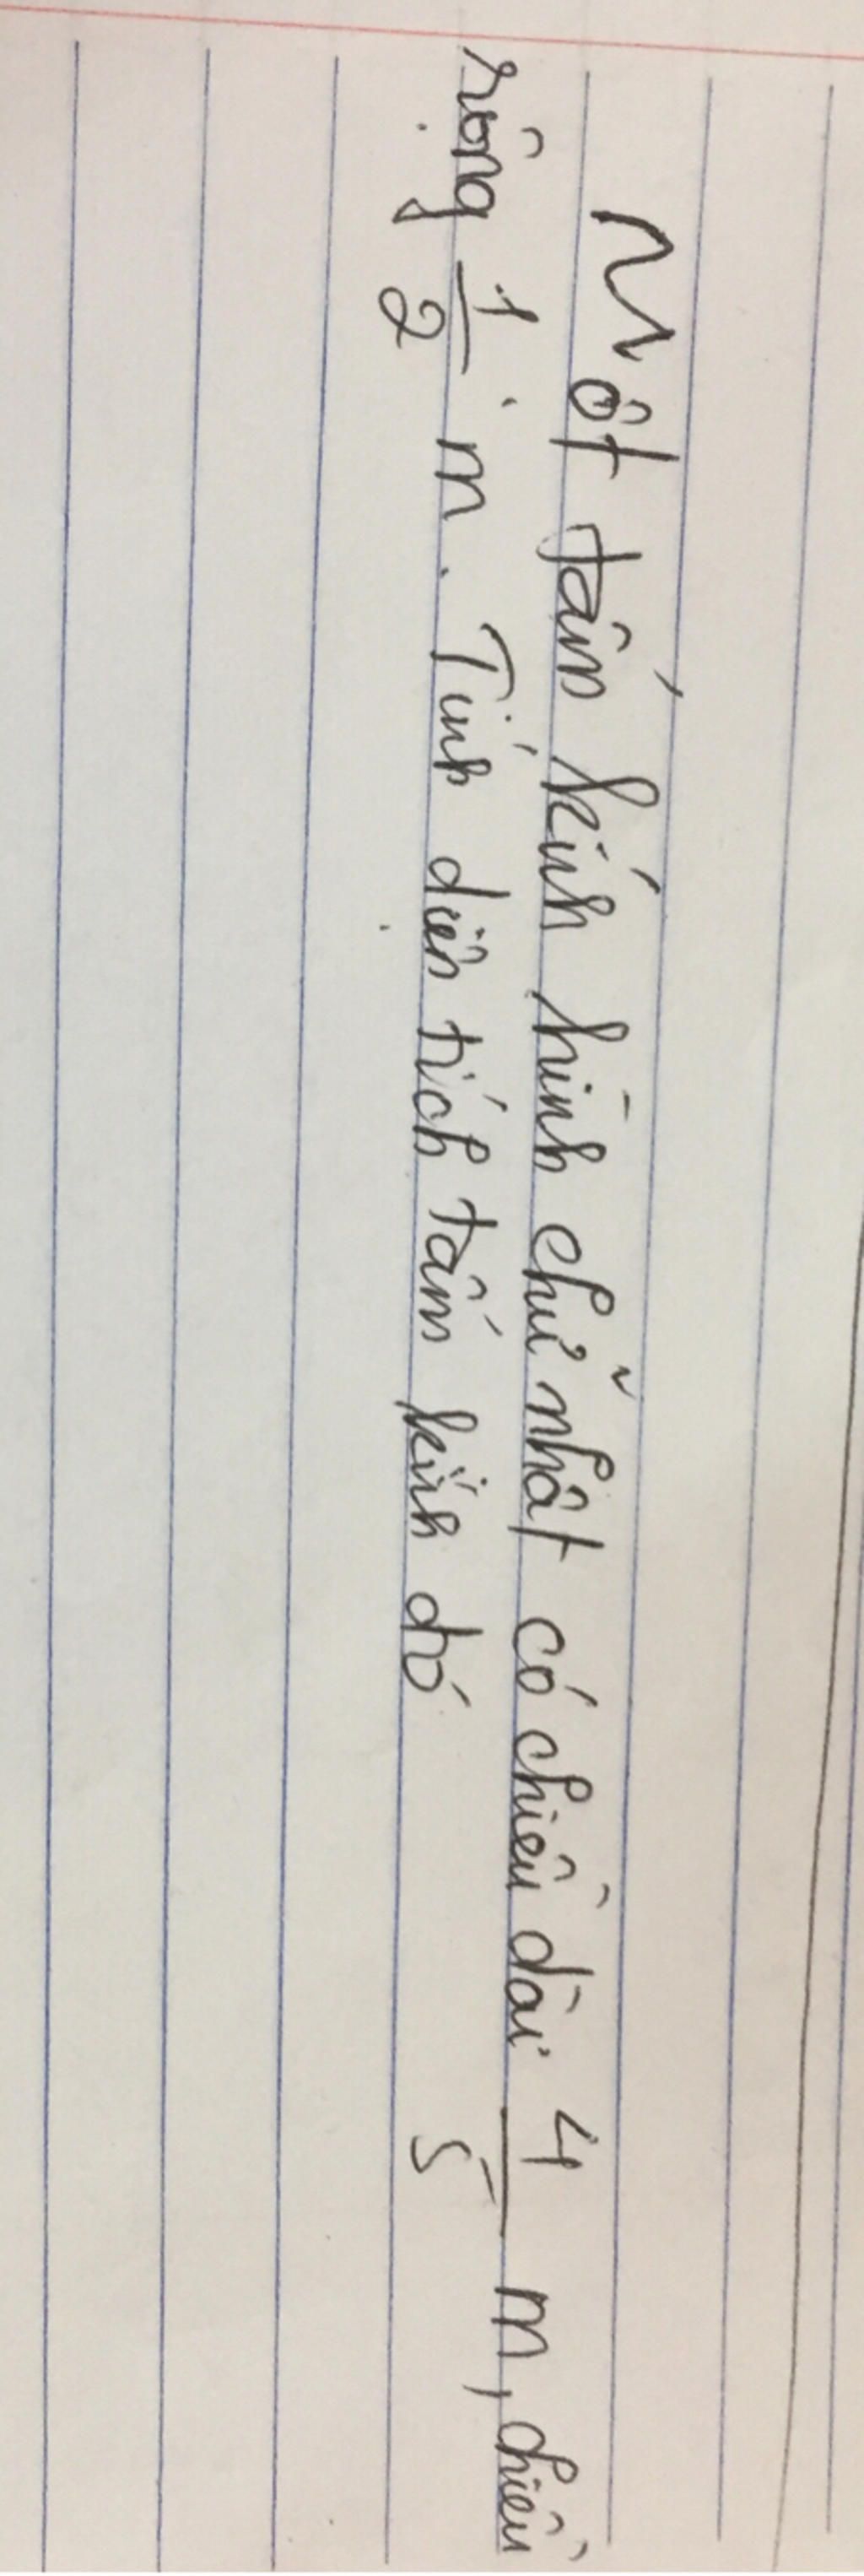 Một tấm kính hình chữ nhật có chiều dài 4/5 m, chiều
rộng 1/2 m. Tính diện tích tấm kính đó